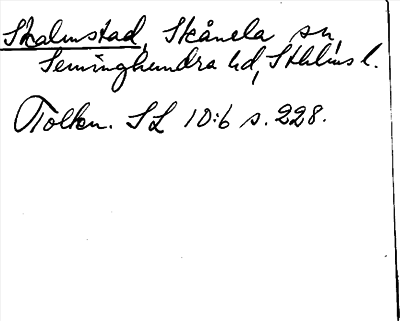 Skalmstad, Skånela sn,
Seminghundra hd, Sthlms l.
Tolkn. SL 10:6 s. 228.